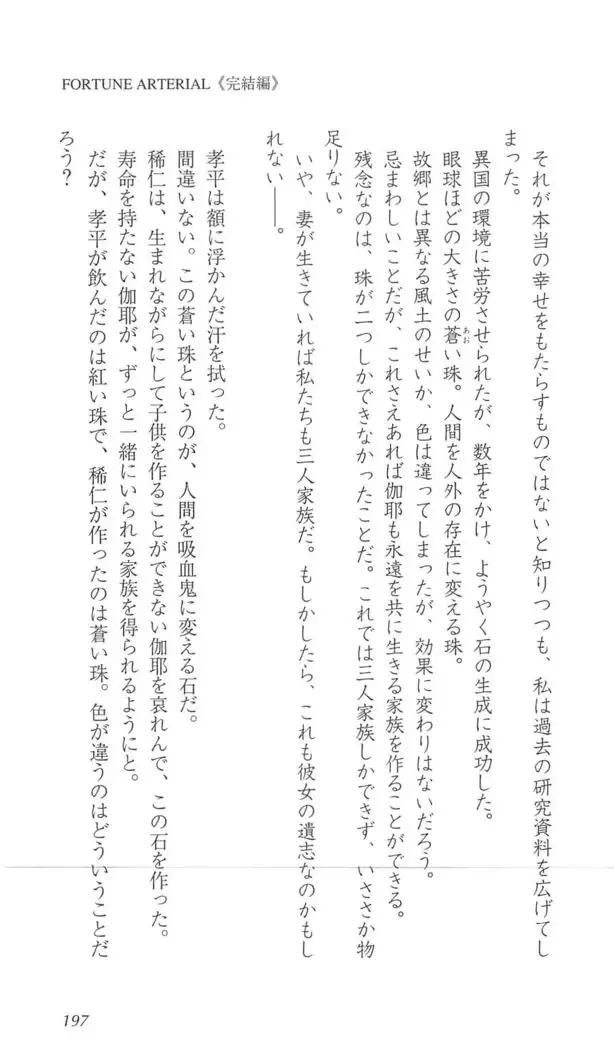 FORTUNE ARTERIAL《完結編》
それが本当の幸せをもたらすものではないと知りつつも、私は過去の研究資料を広げてし
まった。
異国の環境に苦労させられたが、数年をかけ、ようやく石の生成に成功した。
眼球ほどの大きさの蒼い珠。人間を人外の存在に変える珠。
あお
故郷とは異なる風土のせいか、色は違ってしまったが、効果に変わりはないだろう。
忌まわしいことだが、これさえあれば伽耶も永遠を共に生きる家族を作ることができる。
残念なのは、珠が二つしかできなかったことだ。これでは三人家族しかできず、いささか物
足りない。
いや、妻が生きていれば私たちも三人家族だ。もしかしたら、これも彼女の遺志なのかもし
れない――。
孝平は額に浮かんだ汗を拭った。
間違いない。この蒼い珠というのが、人間を吸血鬼に変える石だ。
稀仁は、生まれながらにして子供を作ることができない伽耶を哀れんで、この石を作った。
寿命を持たない伽耶が、ずっと一緒にいられる家族を得られるようにと。
だが、孝平が飲んだのは紅い珠で、稀仁が作ったのは蒼い珠。色が違うのはどういうことだ
ろう？
197